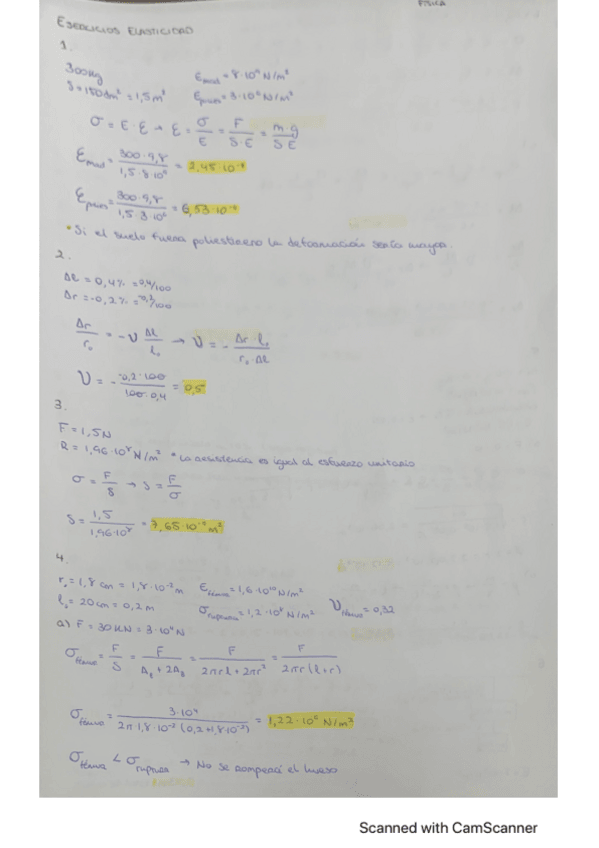 FÍSICA
EJERCICIOS ELASTICIDAD
1.
300Kg
S = 150dm² = 1,5m²
E = 8·10⁶ N/m²
E = 3·10⁶ N/m²
σ = E·ε → ε = σ/E = F/S·E = m·g/S·E
ε = 300·9,8/1,5·8·10⁶ = 2,45·10⁻⁴
ε = 300·9,8/1,5·3·10⁶ = 6,53·10⁻⁴
* Si el suelo fuera poliestireno la deformación sería mayor.
2.
Δl = 0,4% = 0,4/100
Δr = -0,2% = -0,2/100
Δr/r₀ = -ν Δl/l₀ → ν = - Δr·l₀/r₀·Δl
ν = - -0,2·100/100·0,4 = 0,5
3.
F = 1,5N
R = 1,96·10⁸ N/m² * La resistencia es igual al esfuerzo unitario
σ = F/S → S = F/σ
S = 1,5/1,96·10⁸ = 7,65·10⁻⁹ m²
4.
r₀ = 1,8 cm = 1,8·10⁻² m
E fémur = 1,6·10¹⁰ N/m²
l₀ = 20 cm = 0,2 m
σ ruptura = 1,2·10⁸ N/m²
ν fémur = 0,32
a) F = 30 KN = 3·10⁴ N
σ fémur = F/S = F/A + 2A = F/2πrl + 2πr² = F/2πr(l+r)
σ fémur = 3·10⁴/2π·1,8·10⁻²(0,2+1,8·10⁻²) = 1,22·10⁶ N/m²
σ fémur < σ ruptura → No se romperá el hueso
Scanned with CamScanner